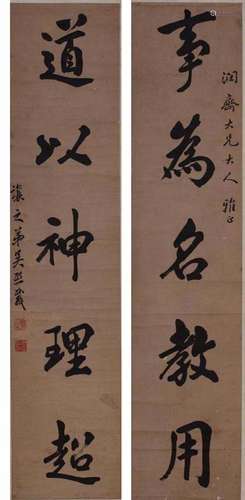 事為名教用
潤齋大兄大人雅正
道以神理超
吳熙載